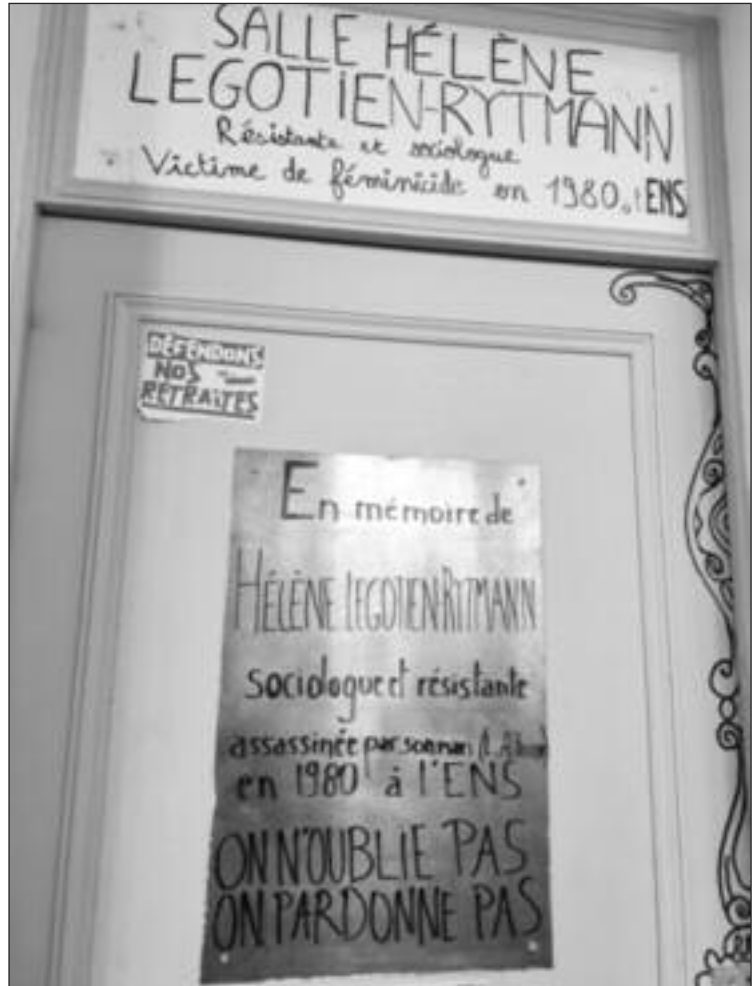 SALLE HÉLÈNE
LEGOTIEN-RYTMANN
Résistante et sociologue
Victime de féminicide en 1980. ENS
DÉFENDONS
NOS
RETRAITES
En mémoire de
HÉLÈNE LEGOTIEN-RYTMANN
sociologue et résistante
assassinée par son mari
en 1980 à l'ENS
ON N'OUBLIE PAS
ON PARDONNE PAS